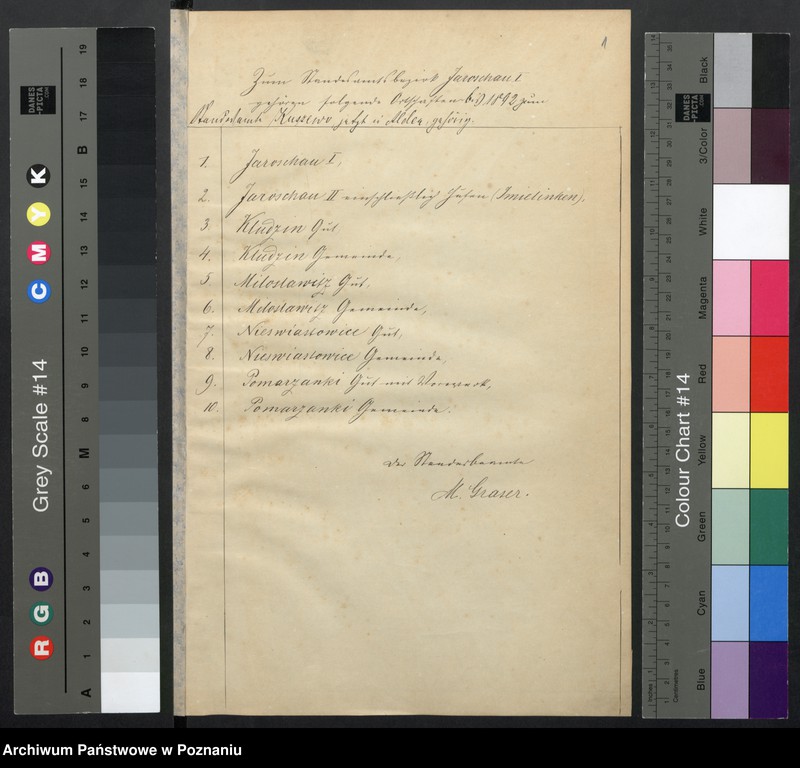 1
Zum Standesamtsbezirk Jaroschau I.
gehören folgende Ortschaften bis 1892 zum
Standesamte jetzt gehörig.
1. Jaroschau I,
2. Jaroschau II einschließlich
3. Kludzin Gut
4. Kludzin Gemeinde,
5 Miloslawitz Gut,
6. Miloslawitz Gemeinde,
7. Nieswiastowice Gut,
8. Nieswiastowice Gemeinde,
9. Pomarzanki Gut mit Vorwerk,
10. Pomarzanki Gemeinde.
Der Standesbeamte
M. Graser.
Grey Scale #14
DANES
-PICTA
.COM
A 1 2 3 4 5 6 M 8 9 10 11 12 13 14 15 B 17 18 19
R G B
C M Y K
Colour Chart #14
DANES
-PICTA
.COM
Blue Cyan Green Yellow Red Magenta White 3/Color Black
Inches
Centimetres
Archiwum Państwowe w Poznaniu